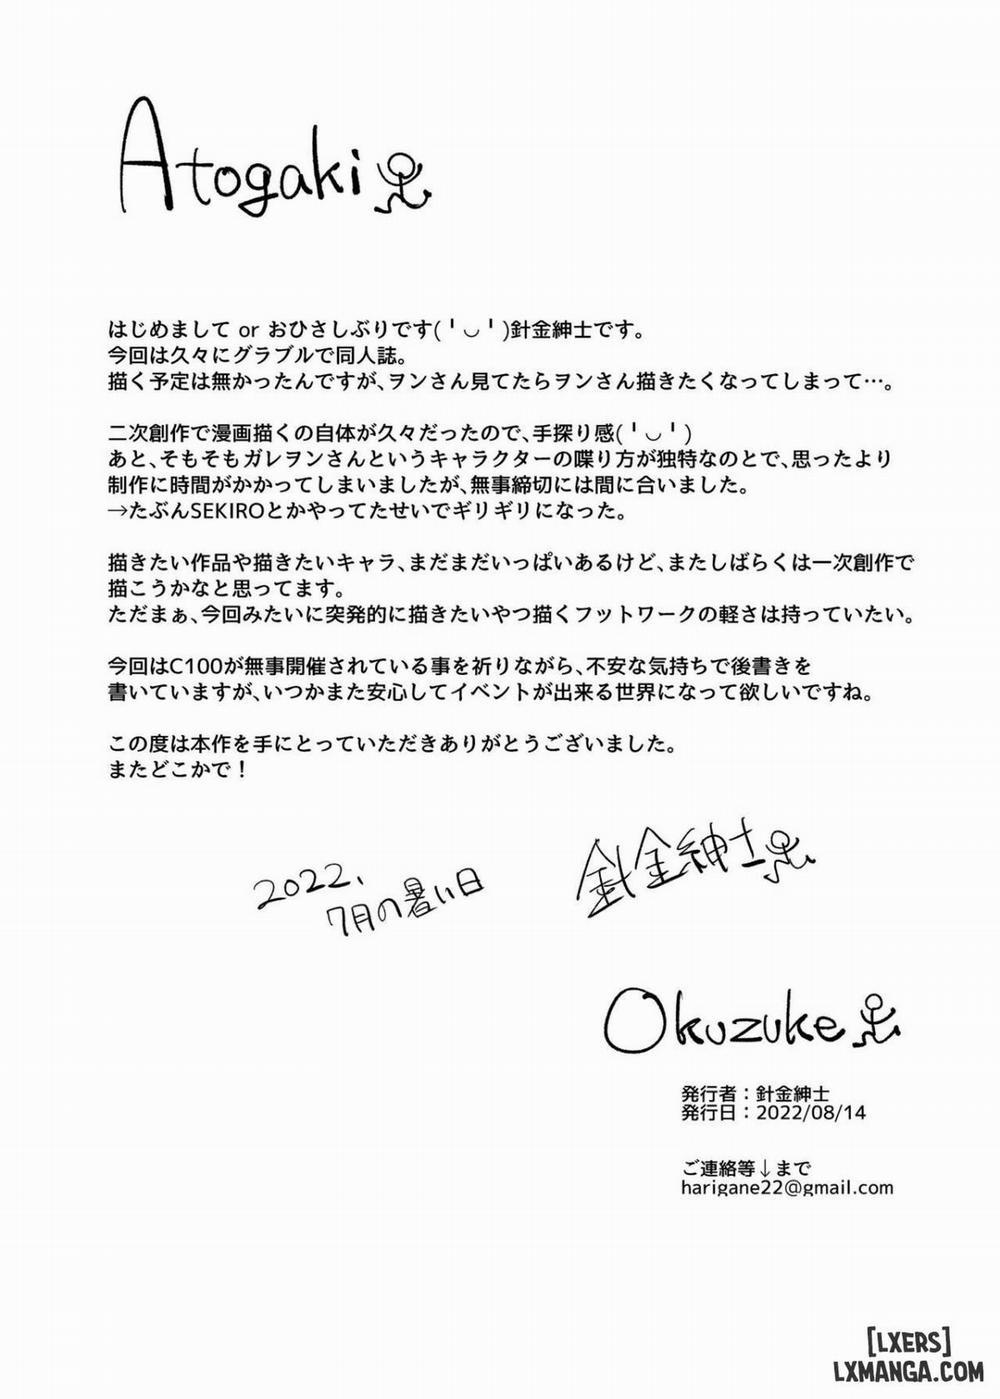 Atogaki
はじめまして or おひさしぶりです( ╹◡╹)針金紳士です。
今回は久々にグラブルで同人誌。
描く予定は無かったんですが、ヲンさん見てたらヲンさん描きたくなってしまって…。
二次創作で漫画描くの自体が久々だったので、手探り感( ╹◡╹)
あと、そもそもガレヲンさんというキャラクターの喋り方が独特なのとで、思ったより
制作に時間がかかってしまいましたが、無事締切には間に合いました。
→たぶんSEKIROとかやってたせいでギリギリになった。
描きたい作品や描きたいキャラ、まだまだいっぱいあるけど、またしばらくは一次創作で
描こうかなと思ってます。
ただまぁ、今回みたいに突発的に描きたいやつ描くフットワークの軽さは持っていたい。
今回はC100が無事開催されている事を祈りながら、不安な気持ちで後書きを
書いていますが、いつかまた安心してイベントが出来る世界になって欲しいですね。
この度は本作を手にとっていただきありがとうございました。
またどこかで！
2022、
7月の暑い日
針金紳士
Okuzuke
発行者：針金紳士
発行日：2022/08/14
ご連絡等↓まで
harigane22@gmail.com
[LXERS]
LXMANGA.COM